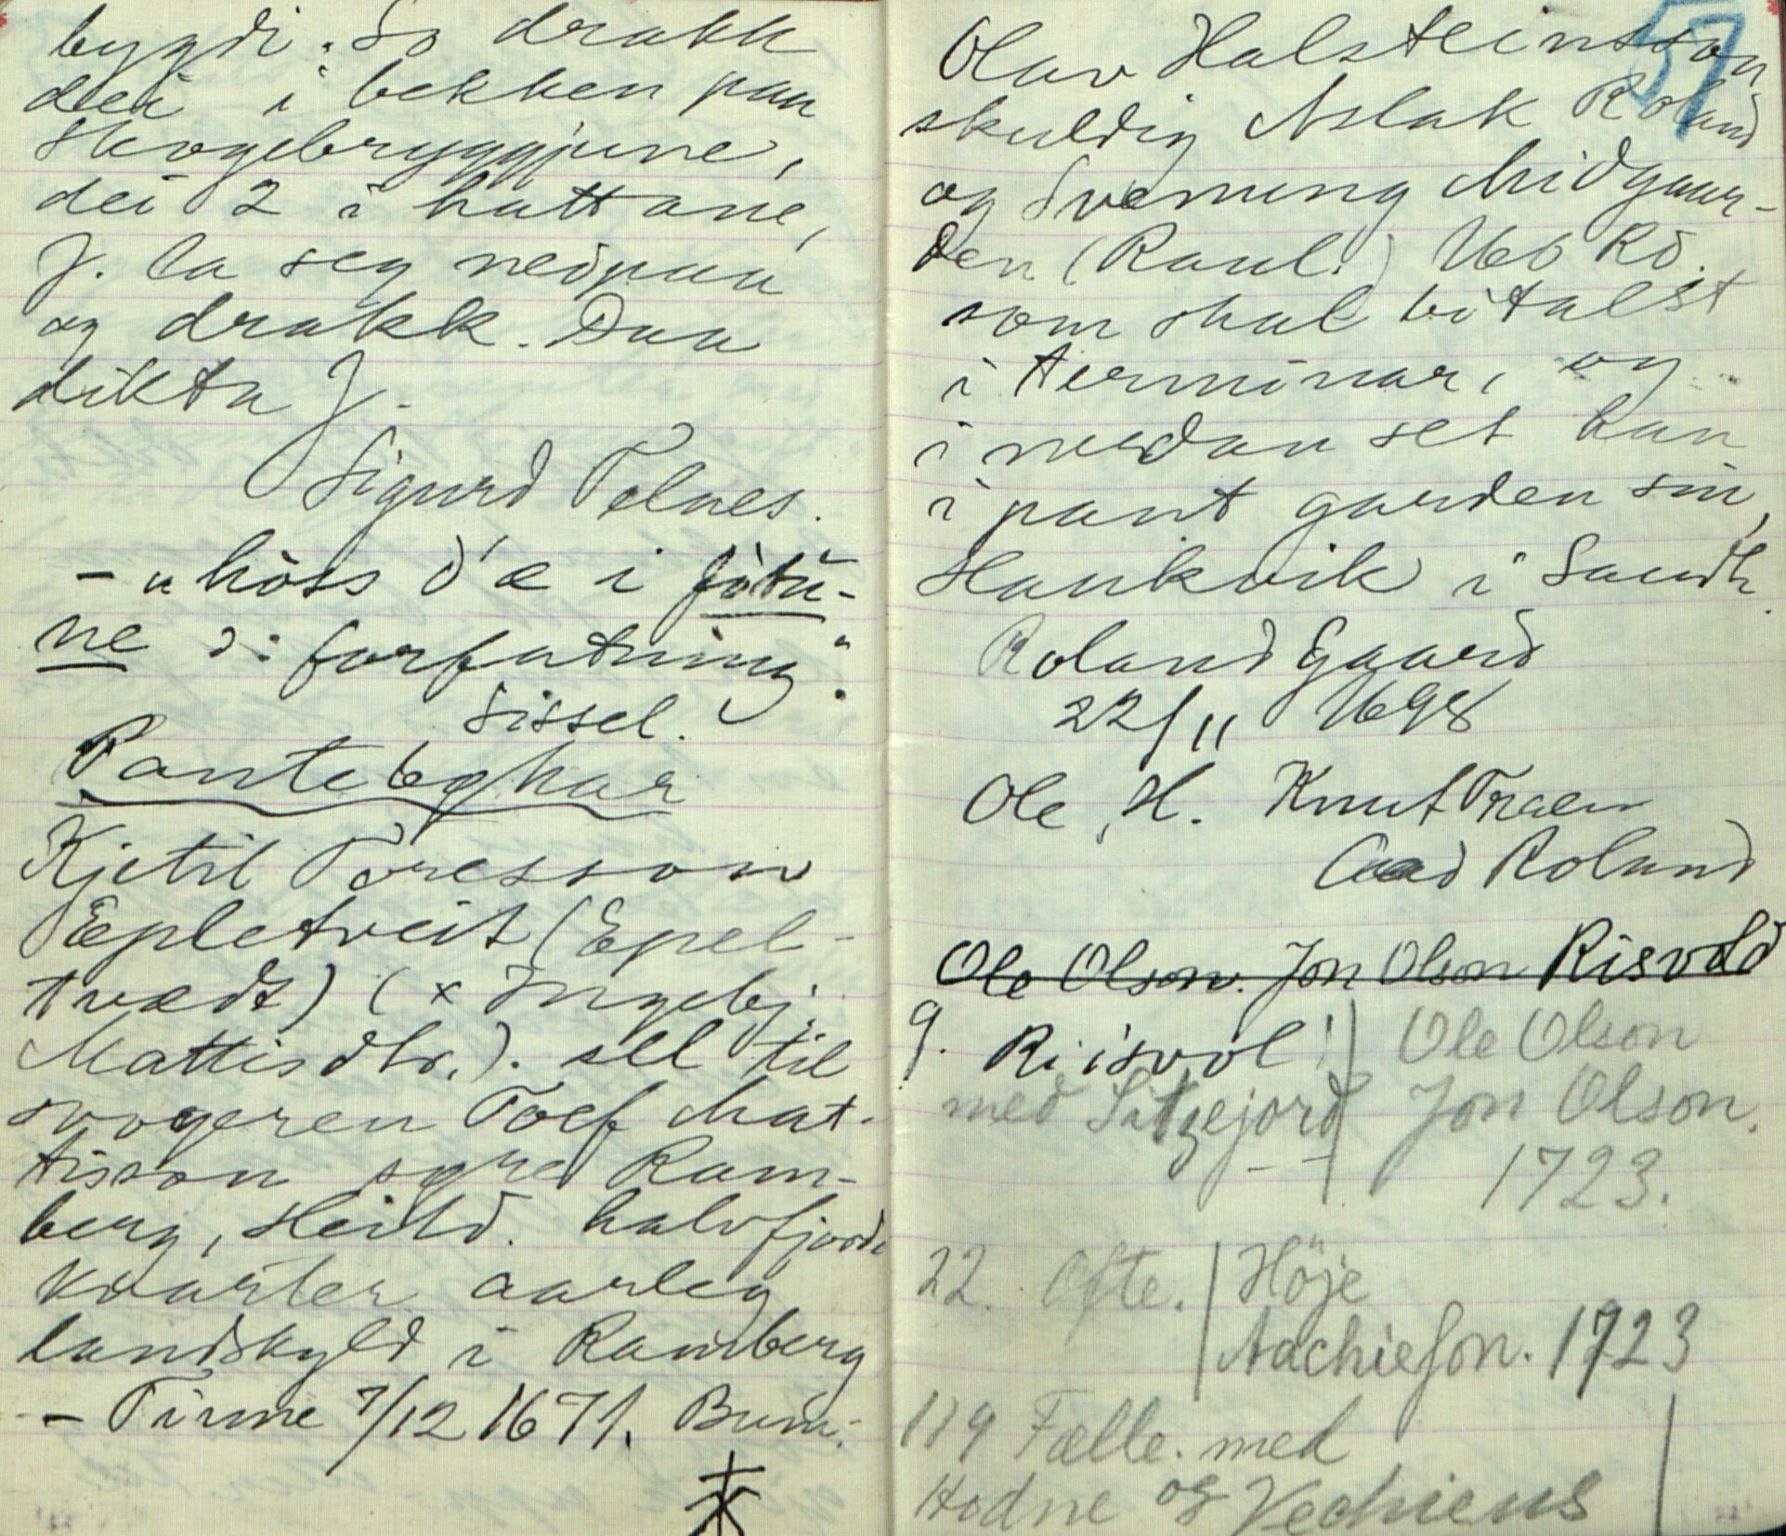 bygdi. So drakk
dei i bekken paa
Skogebryggjune,
dei 2 i hattane,
J. la seg nedpaa
og drakk. Daa
dikta J.
Sigurd Telnes.
- "høss d'æ i jòtù-
ne ɔ: forfatning".
Sissel.
Pantebøkar
Kjetil Toresson
Æpletveit (Epel-
tvædt) (x Ingebj.
Mattisdtr.). sel til
svogeren Toef Mat-
tisson søre Ram-
berg, Heidd. halvfjorde
kvarter aarleg
landskyld i Ramberg
- Tinne 7/12 1671. Bum.
57
Olav Halsteinsson
skuldig Aslak Roland
og Svenung Midgaar-
den (Raul.) 166 Rd.
som skal bitalst
i terminar, og
i medan set han
i pant garden sin,
Haukvik i Saudh.
Roland Egaard
22/11 1698
Ole H. Knut Traen
Aad Roland
Ole Olson. Jon Olson Risvold
9. Riisvol | Ole Olson
med Sitzejord | Jon Olson.
1723.
22. Ofte. | Høje
Aachieson. 1723
119 Fælle. med
Hodne og Vechiens